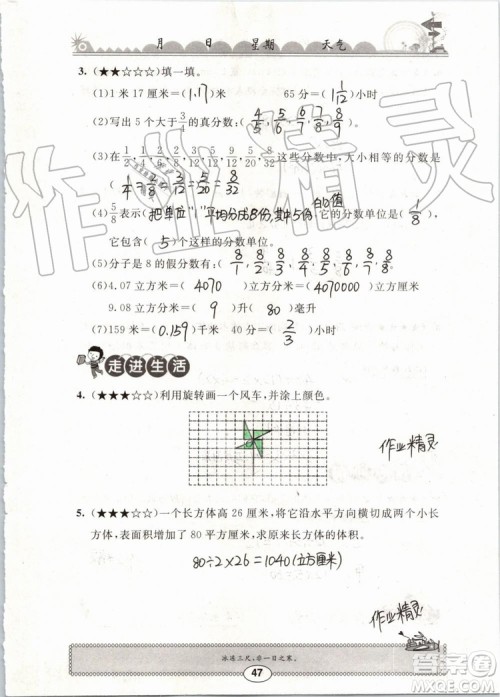 月 日 星期 天气
3. (★★☆☆☆)填一填。
(1)1米17厘米=(1.17)米 65分=(1 1/12)小时
(2)写出5个大于3/4的真分数:(4/5, 5/6, 6/7, 7/8, 8/9)
(3)在1/2, 1/4, 2/8, 3/12, 5/9, 5/20, 8/32这些分数中,大小相等的分数是
(1/4=2/8=3/12=5/20=8/32)
(4)5/8表示(把单位"1"平均分成8份,其中5份的值),它的分数单位是(1/8),
它包含(5)个这样的分数单位。
(5)分子是8的假分数有:8/1, 8/2, 8/3, 8/4, 8/5, 8/6, 8/7, 8/8
(6)4.07立方米=(4070)立方分米=(4070000)立方厘米
9.08立方分米=(9)升(80)毫升
(7)159米=(0.159)千米 40分=(2/3)小时
走进生活
4. (★★★☆☆)利用旋转画一个风车,并涂上颜色。
作业精灵
5. (★★★☆☆)一个长方体高26厘米,将它沿水平方向横切成两个小长
方体,表面积增加了80平方厘米,求原来长方体的体积。
80÷2×26=1040(立方厘米)
作业精灵
冰冻三尺,非一日之寒。
47
作业精灵
答案圈
MXQE.COM